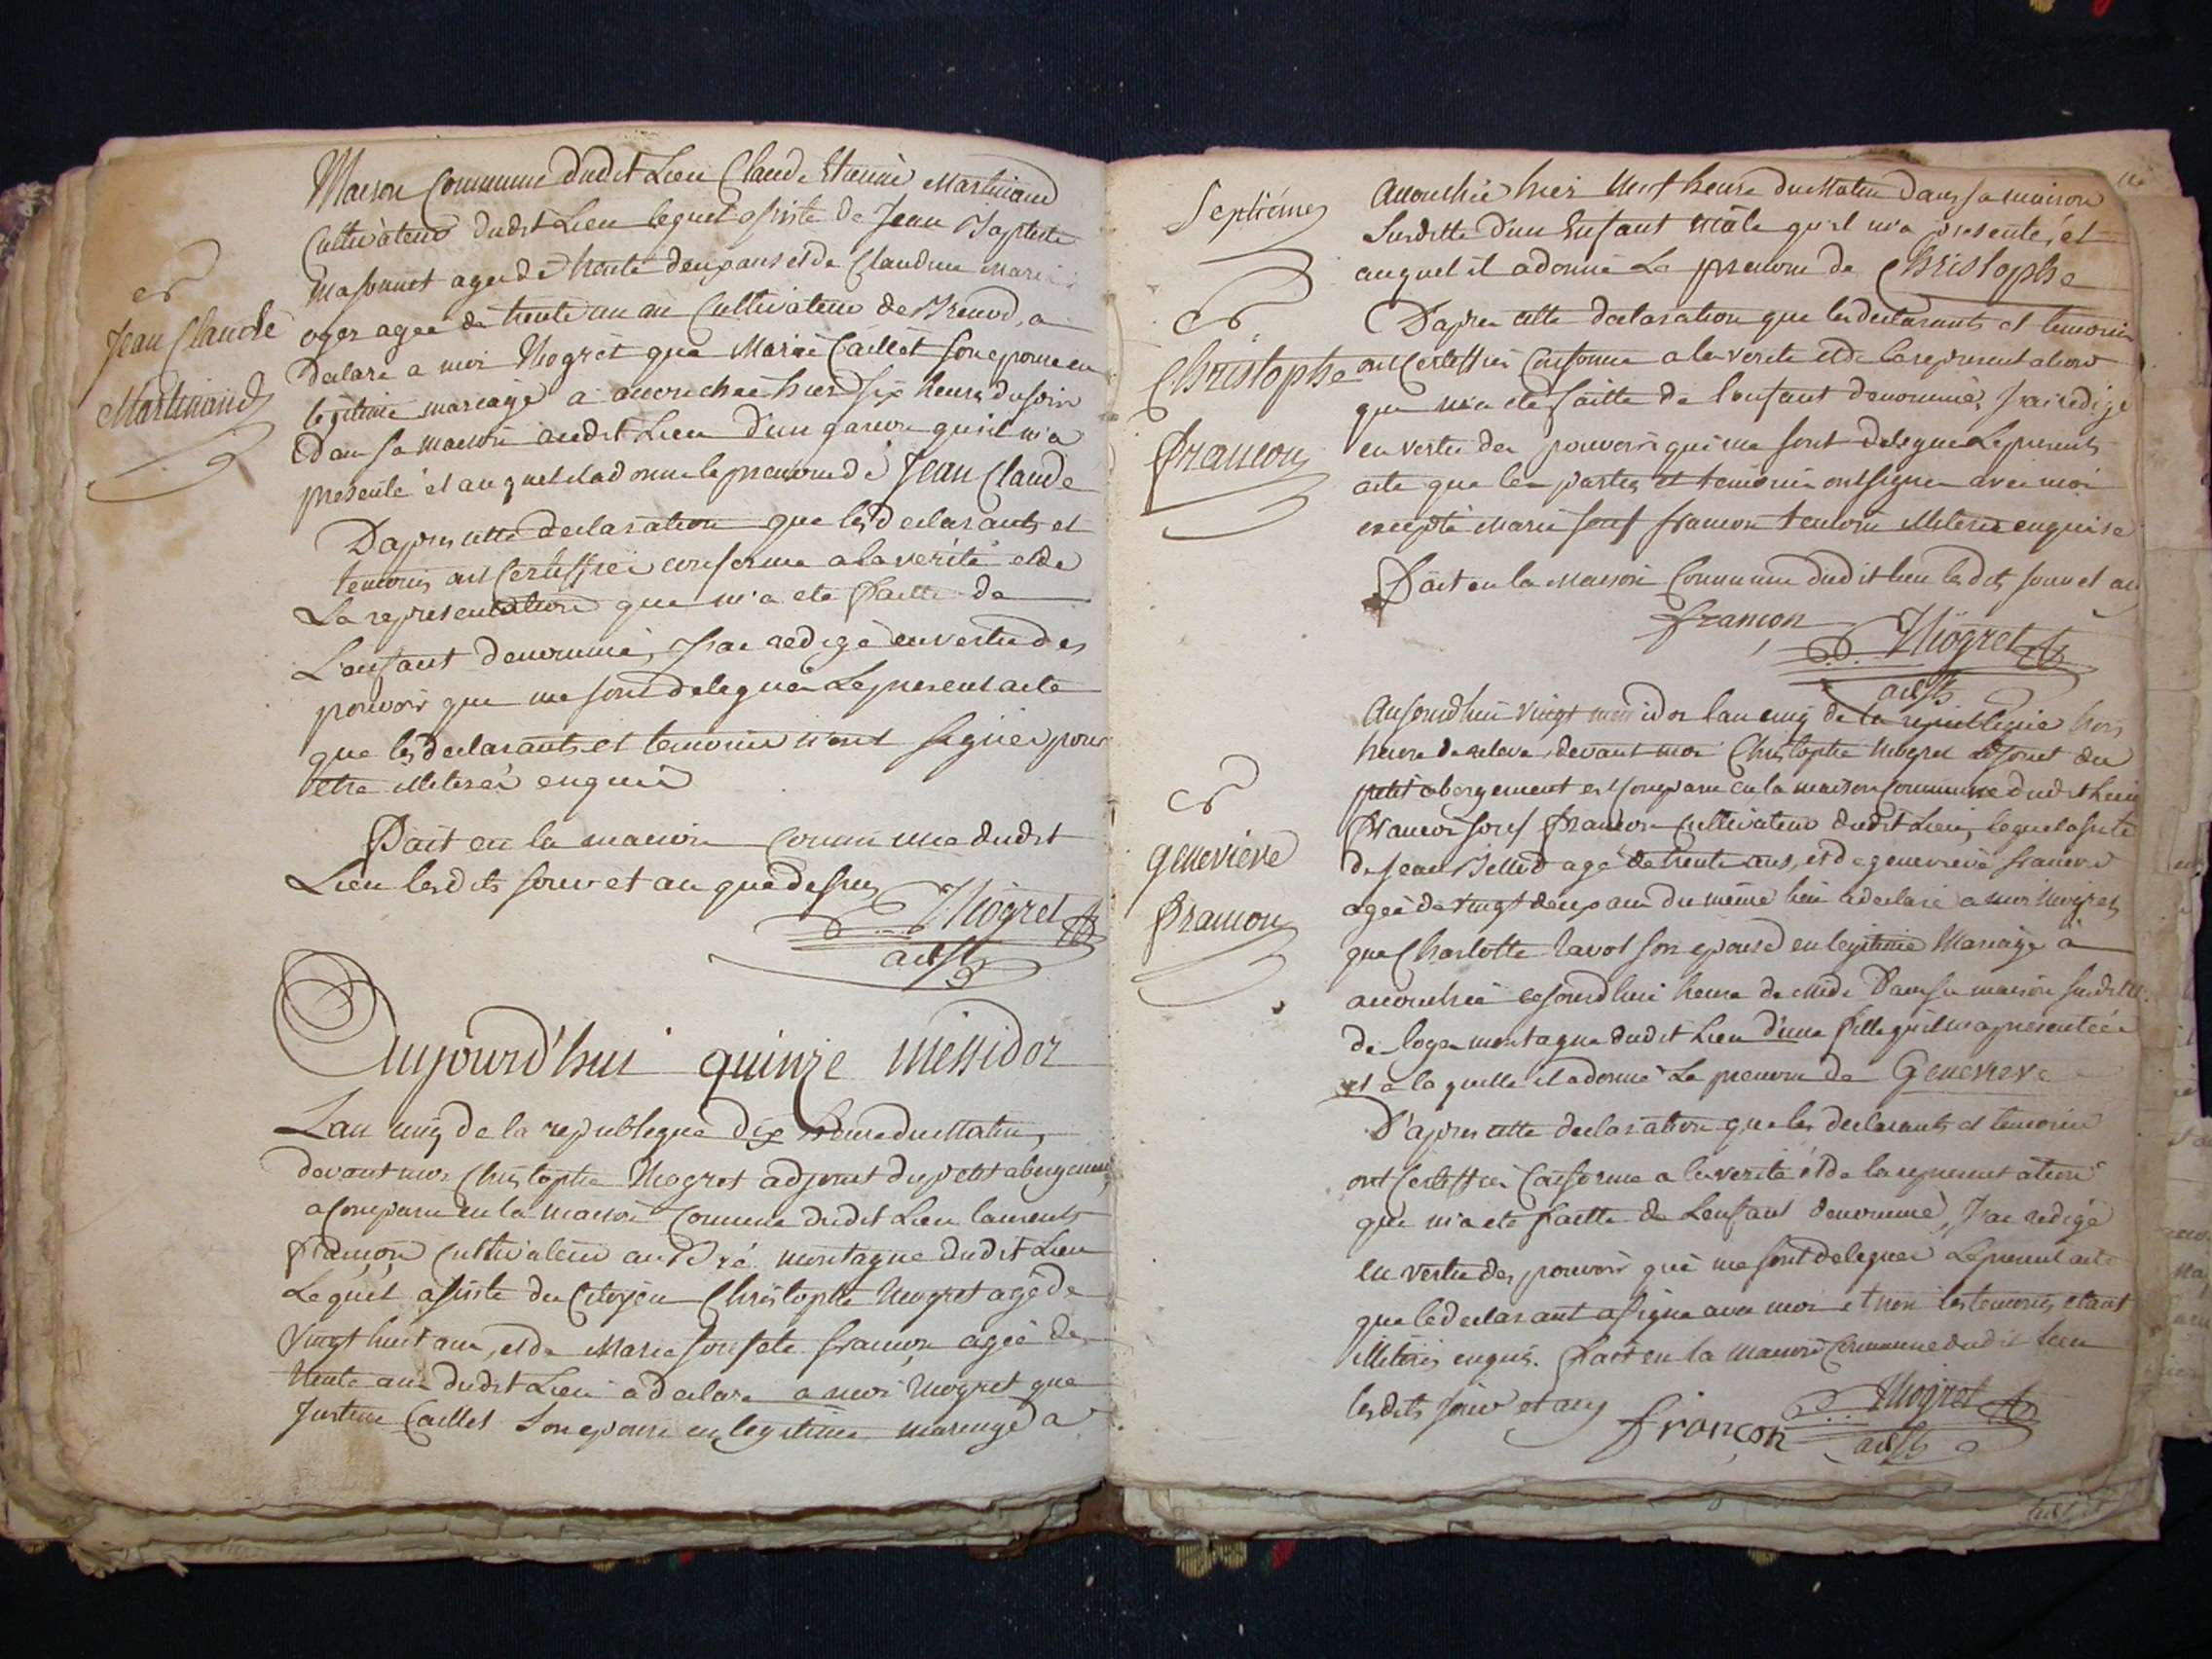 Maison Commune dudit Lieu Claude Etienne Martinand
Cultivateur dudit Lieu lequel assisté de Jean Baptiste
Massonnet agé de trente deux ans et de Claudine Marie
oger agée de trente un an Cultivateur de Brenod, a
Declaré a moi Mogret que Marie Caillet son epouse en
legitime mariage a accouchée hier six heures du soir
Dan sa maison audit Lieu d'un garcon qu'il m'a
presenté et auquel il a donné le prenom de Jean Claude
er
Jean Claude
Martinand
D'apres cette declaration que les declarants et
temoins ont Certiffiéé conforme a la verité et de
La representation que m'a eté faitte de
L'enfant denommé, J'ai redigé en vertu des
pouvoir que me sont delegués Le present acte
que les declarants et temoins n'ont signés pour
etre illiterés enquis
Fait en la maison Commune dudit
Lieu lesdits jour et an que dessus
Mogret
adjt
Aujourd'hui quinze messidor
L'an cinq de la republique dix heure du Matin,
devant moi Christophe Mogret adjoint du petit abergement
a Comparu en la maison Commune dudit Lieu laurents
francon Cultivateur au Pré montagne dudit Lieu
Lequel assisté du Citoyen Christophe Mogret agé de
Vingt huit ans, et de Marie Josephte francon agée de
trente ans dudit Lieu a declaré a moi Mogret que
Justine Caillet Son epouse en legitime mariage a
Septiémes
accouchée hier neuf heure du Matin dans sa maison
Susditte d'un Enfant mâle qu'il m'a presenté, et
auquel il a donné Le prenom de Christophe
er
Christophe
francon
D'apres cette declaration que les declarants et temoins
ont Certiffiés Conforme a la verité et de la representation
que m'a eté faitte de l'enfant denommé, J'ai redigé
en vertu des pouvoirs qui me sont delegués Le present
acte que les parties et temoins ont signés avec moi
excepté Marie Josephte francon temoin illiterée enquise
Fait en la Maison Commune dudit lieu lesdits jour et an
francon
Mogret
adjt
Aujourd'hui Vingt messidor l'an cinq de la republique trois
heure de relevé, devant moi Christophe Mogret adjoint du
petit abergement est Comparu en la maison Commune dudit Lieu
Francois Joseph francon Cultivateur dudit Lieu, lequel assisté
de Jean agé de trente ans, et de genevieve francon
agée de vingt deux ans du même lieu a declaré a moi Mogret
que Charlotte Savot son epouse en legitime Mariage a
accouchée cejourd'hui heure de midi Dans sa maison susditte
de loge montagne dudit Lieu d'une fille qu'il m'a presentée
et a laquelle il a donné Le prenom de Genevieve
er
genevieve
francon
D'apres cette declaration que les declarants et temoins
ont Certiffiés Conforme a la verité et de la representation
que m'a eté faitte de L'enfant denommé, J'ai redigé
en vertu des pouvoir qui me sont delegués Le present acte
que le declarant a signé avec moi et non les temoins etant
illiterés enquis. Fait en la maison Commune dudit lieu
lesdits jour et an
françon
Mogret
adjt